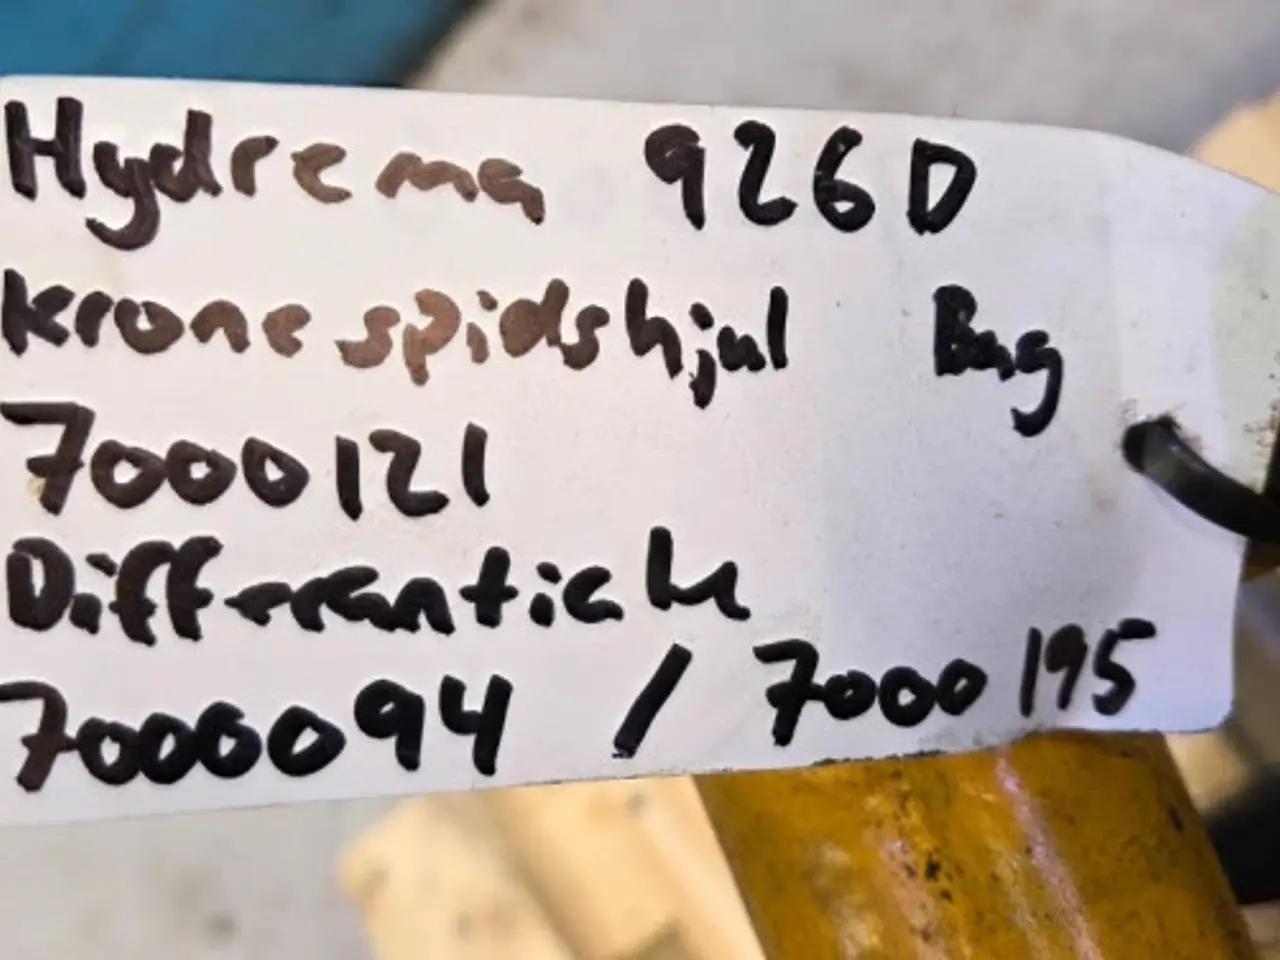 Hydrema 926D
Krone spidshjul Bag
7000121
Differentiale
7000094 / 7000195